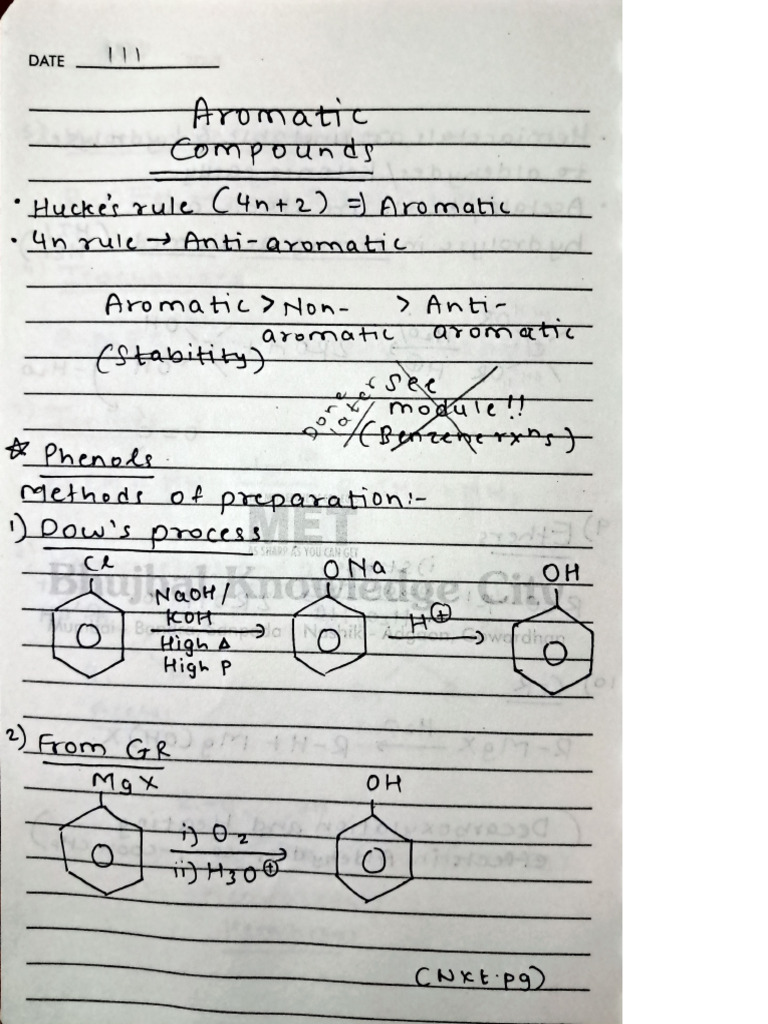 DATE 111
Aromatic
Compounds
• Hucke's rule (4n+2) => Aromatic
• 4n rule → Anti-aromatic
Aromatic > Non-aromatic > Anti-aromatic
(Stability)
Done later
see
module!!
(Benzene rxns)
☆ Phenols
Methods of preparation:-
1) Dow's process
MET
AS SHARP AS YOU CAN GET
Bhujbal Knowledge City
Mumbai - Bandra, | Nashik - Adgaon, Govardhan
Cl
NaOH/
KOH
High Δ
High P
ONa
H⊕
OH
2) From GR
MgX
i) O2
ii) H3O⊕
OH
(Nxt.pg)